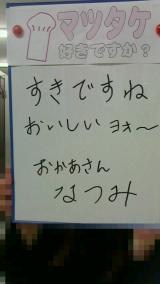 マツタケ
好きですか?
すきですね
おいしいヨォ〜
おかあさん
なつみ